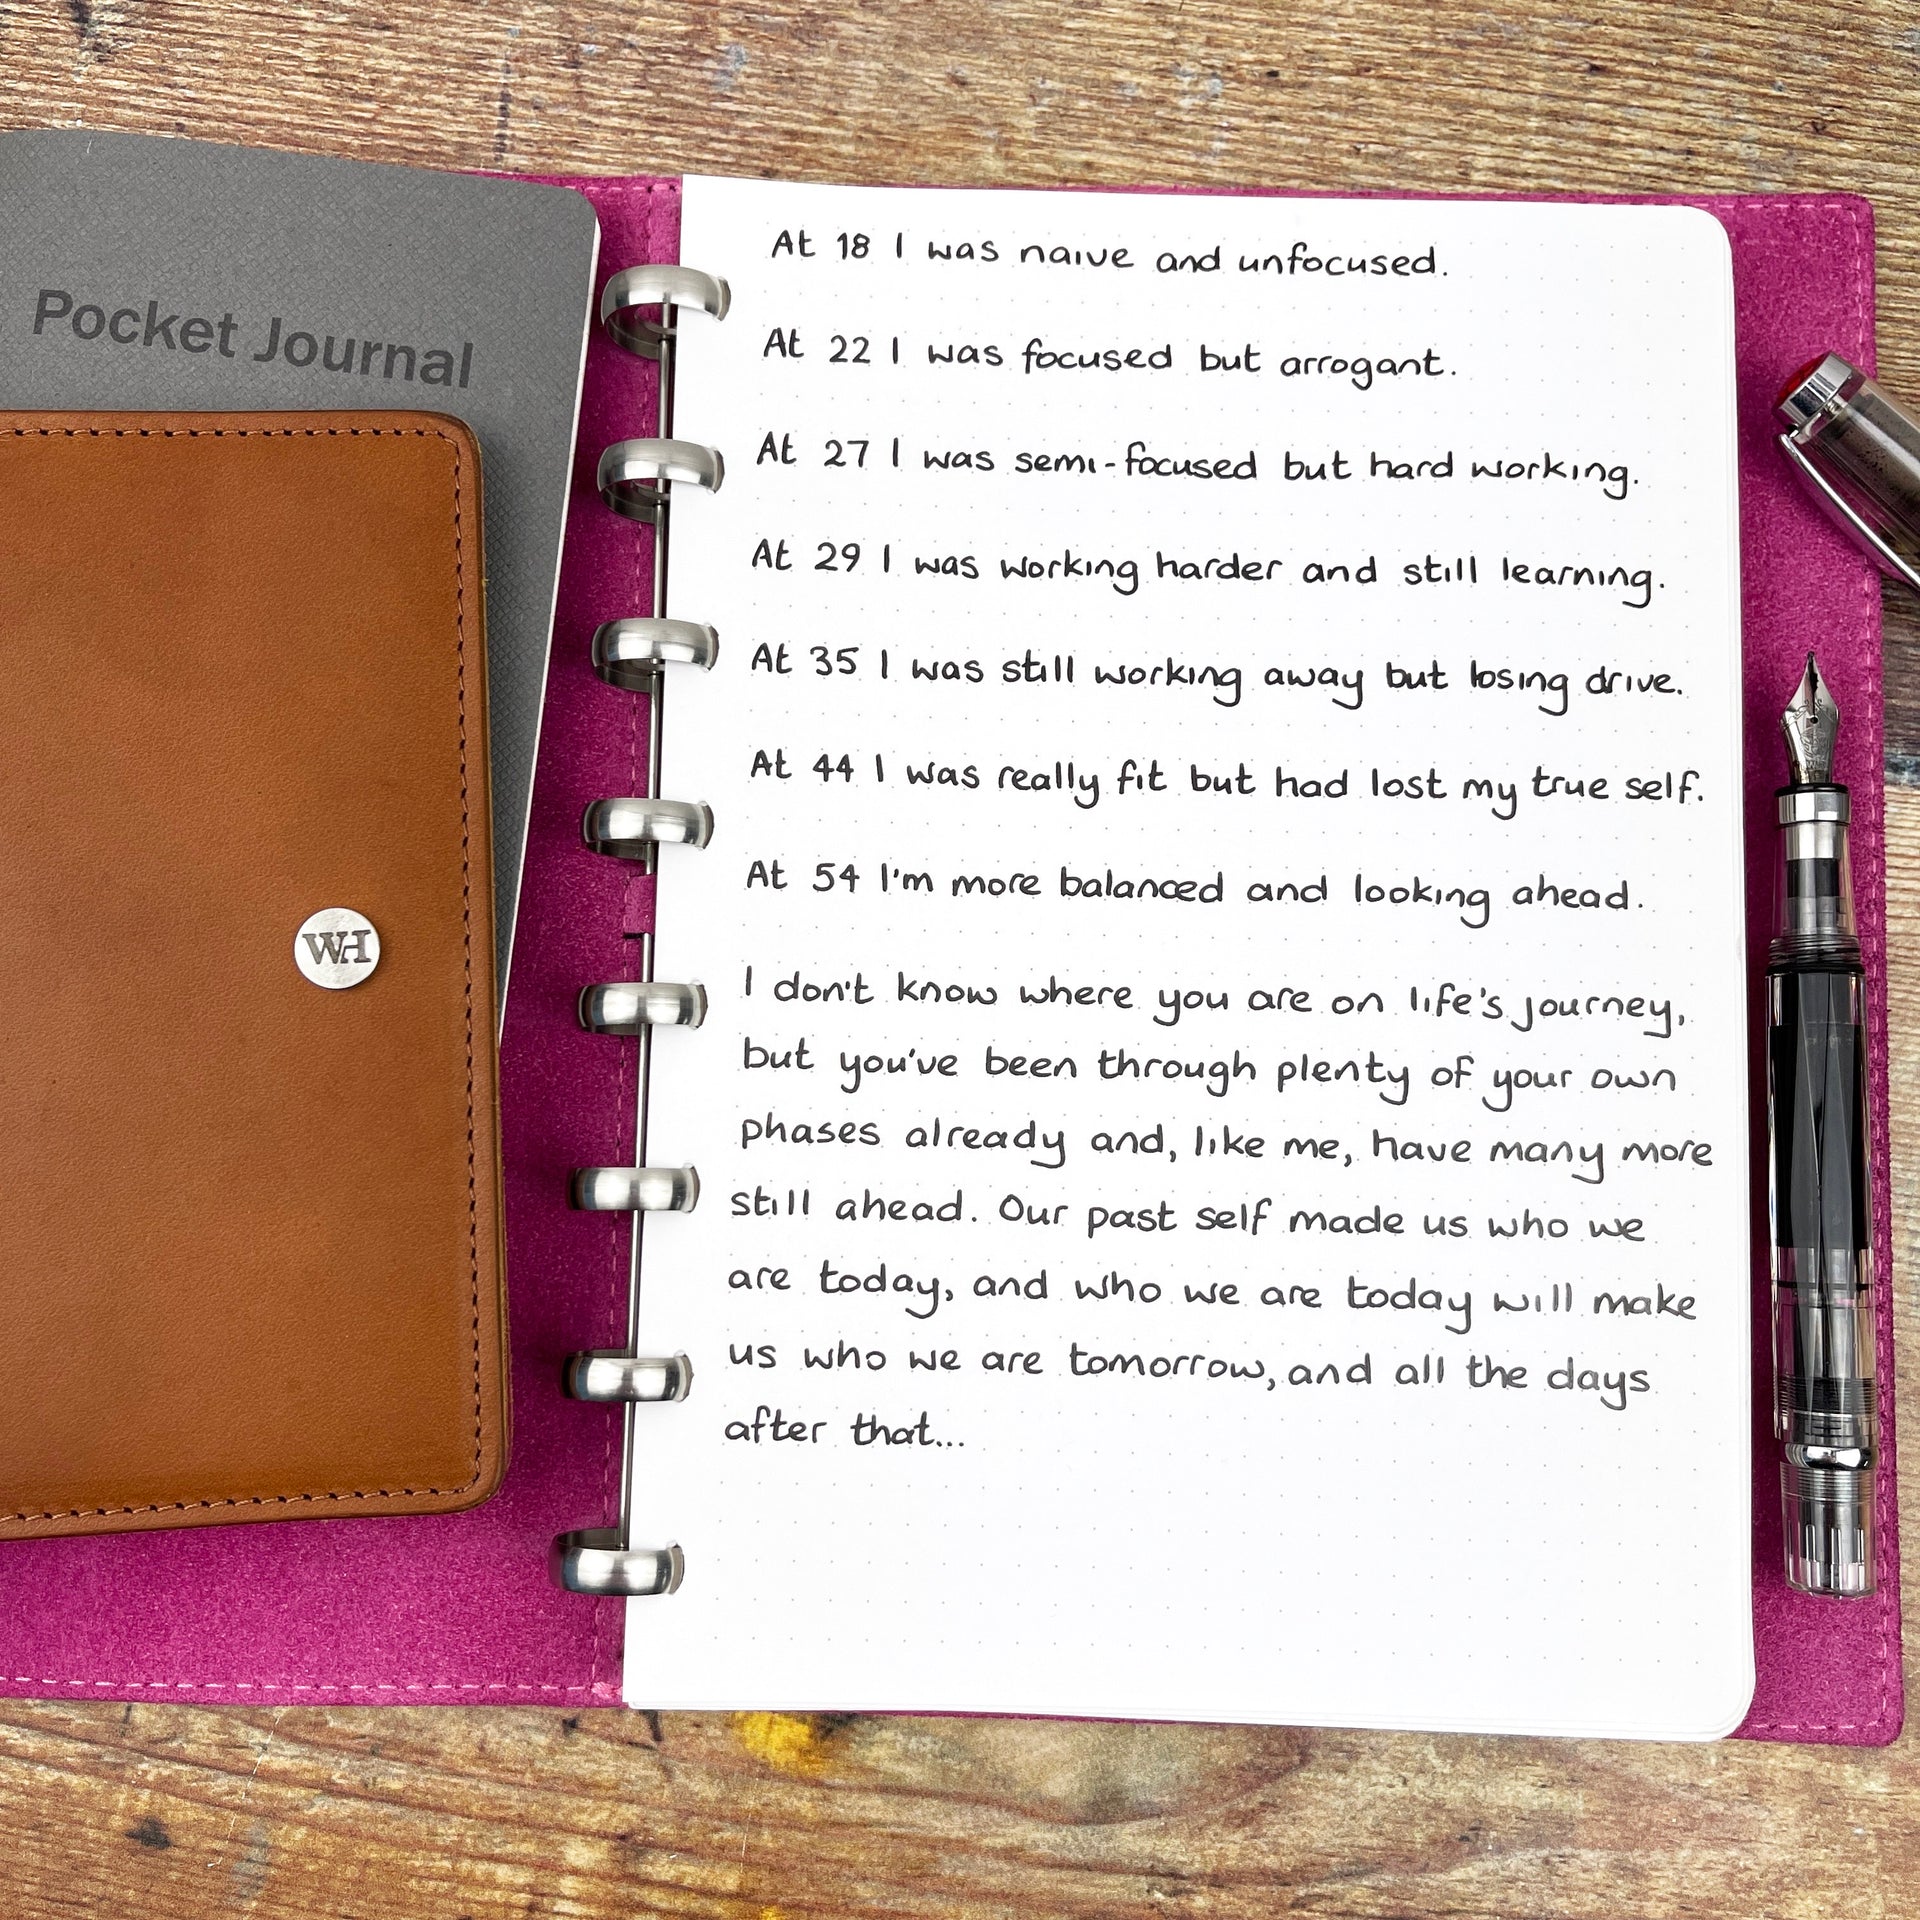 Pocket Journal
WH
At 18 I was naive and unfocused.
At 22 I was focused but arrogant.
At 27 I was semi-focused but hard working.
At 29 I was working harder and still learning.
At 35 I was still working away but losing drive.
At 44 I was really fit but had lost my true self.
At 54 I'm more balanced and looking ahead.
I don't know where you are on life's journey,
but you've been through plenty of your own
phases already and, like me, have many more
still ahead. Our past self made us who we
are today, and who we are today will make
us who we are tomorrow, and all the days
after that...